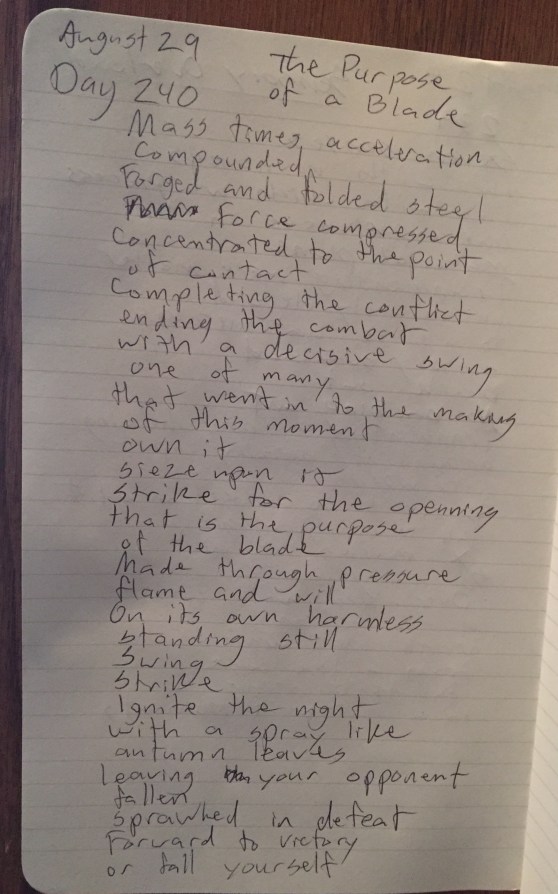 August 29
The Purpose
Day 240
of a Blade
Mass times acceleration
compounded
Forged and folded steel
Force compressed
Concentrated to the point
of contact
Completing the conflict
ending the combat
with a decisive swing
one of many
that went in to the making
of this moment
own it
sieze upon it
Strike for the openning
that is the purpose
of the blade
Made through pressure
flame and will
On its own harmless
standing still
Swing
Strike
Ignite the night
with a spray like
autumn leaves
leaving your opponent
fallen
sprawled in defeat
Forward to victory
or fall yourself